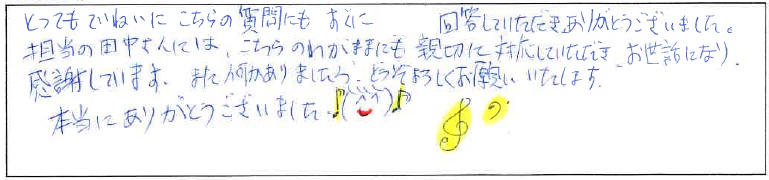 とってもていねいにこちらの質問にもすぐに 回答していただきありがとうございました。
担当の田中さんには、こちらのわがままにも親切に対応していただき、お世話になり、
感謝しています。また何かありましたら、どうぞよろしくお願いいたします。
本当にありがとうございました。♪(^^)♪